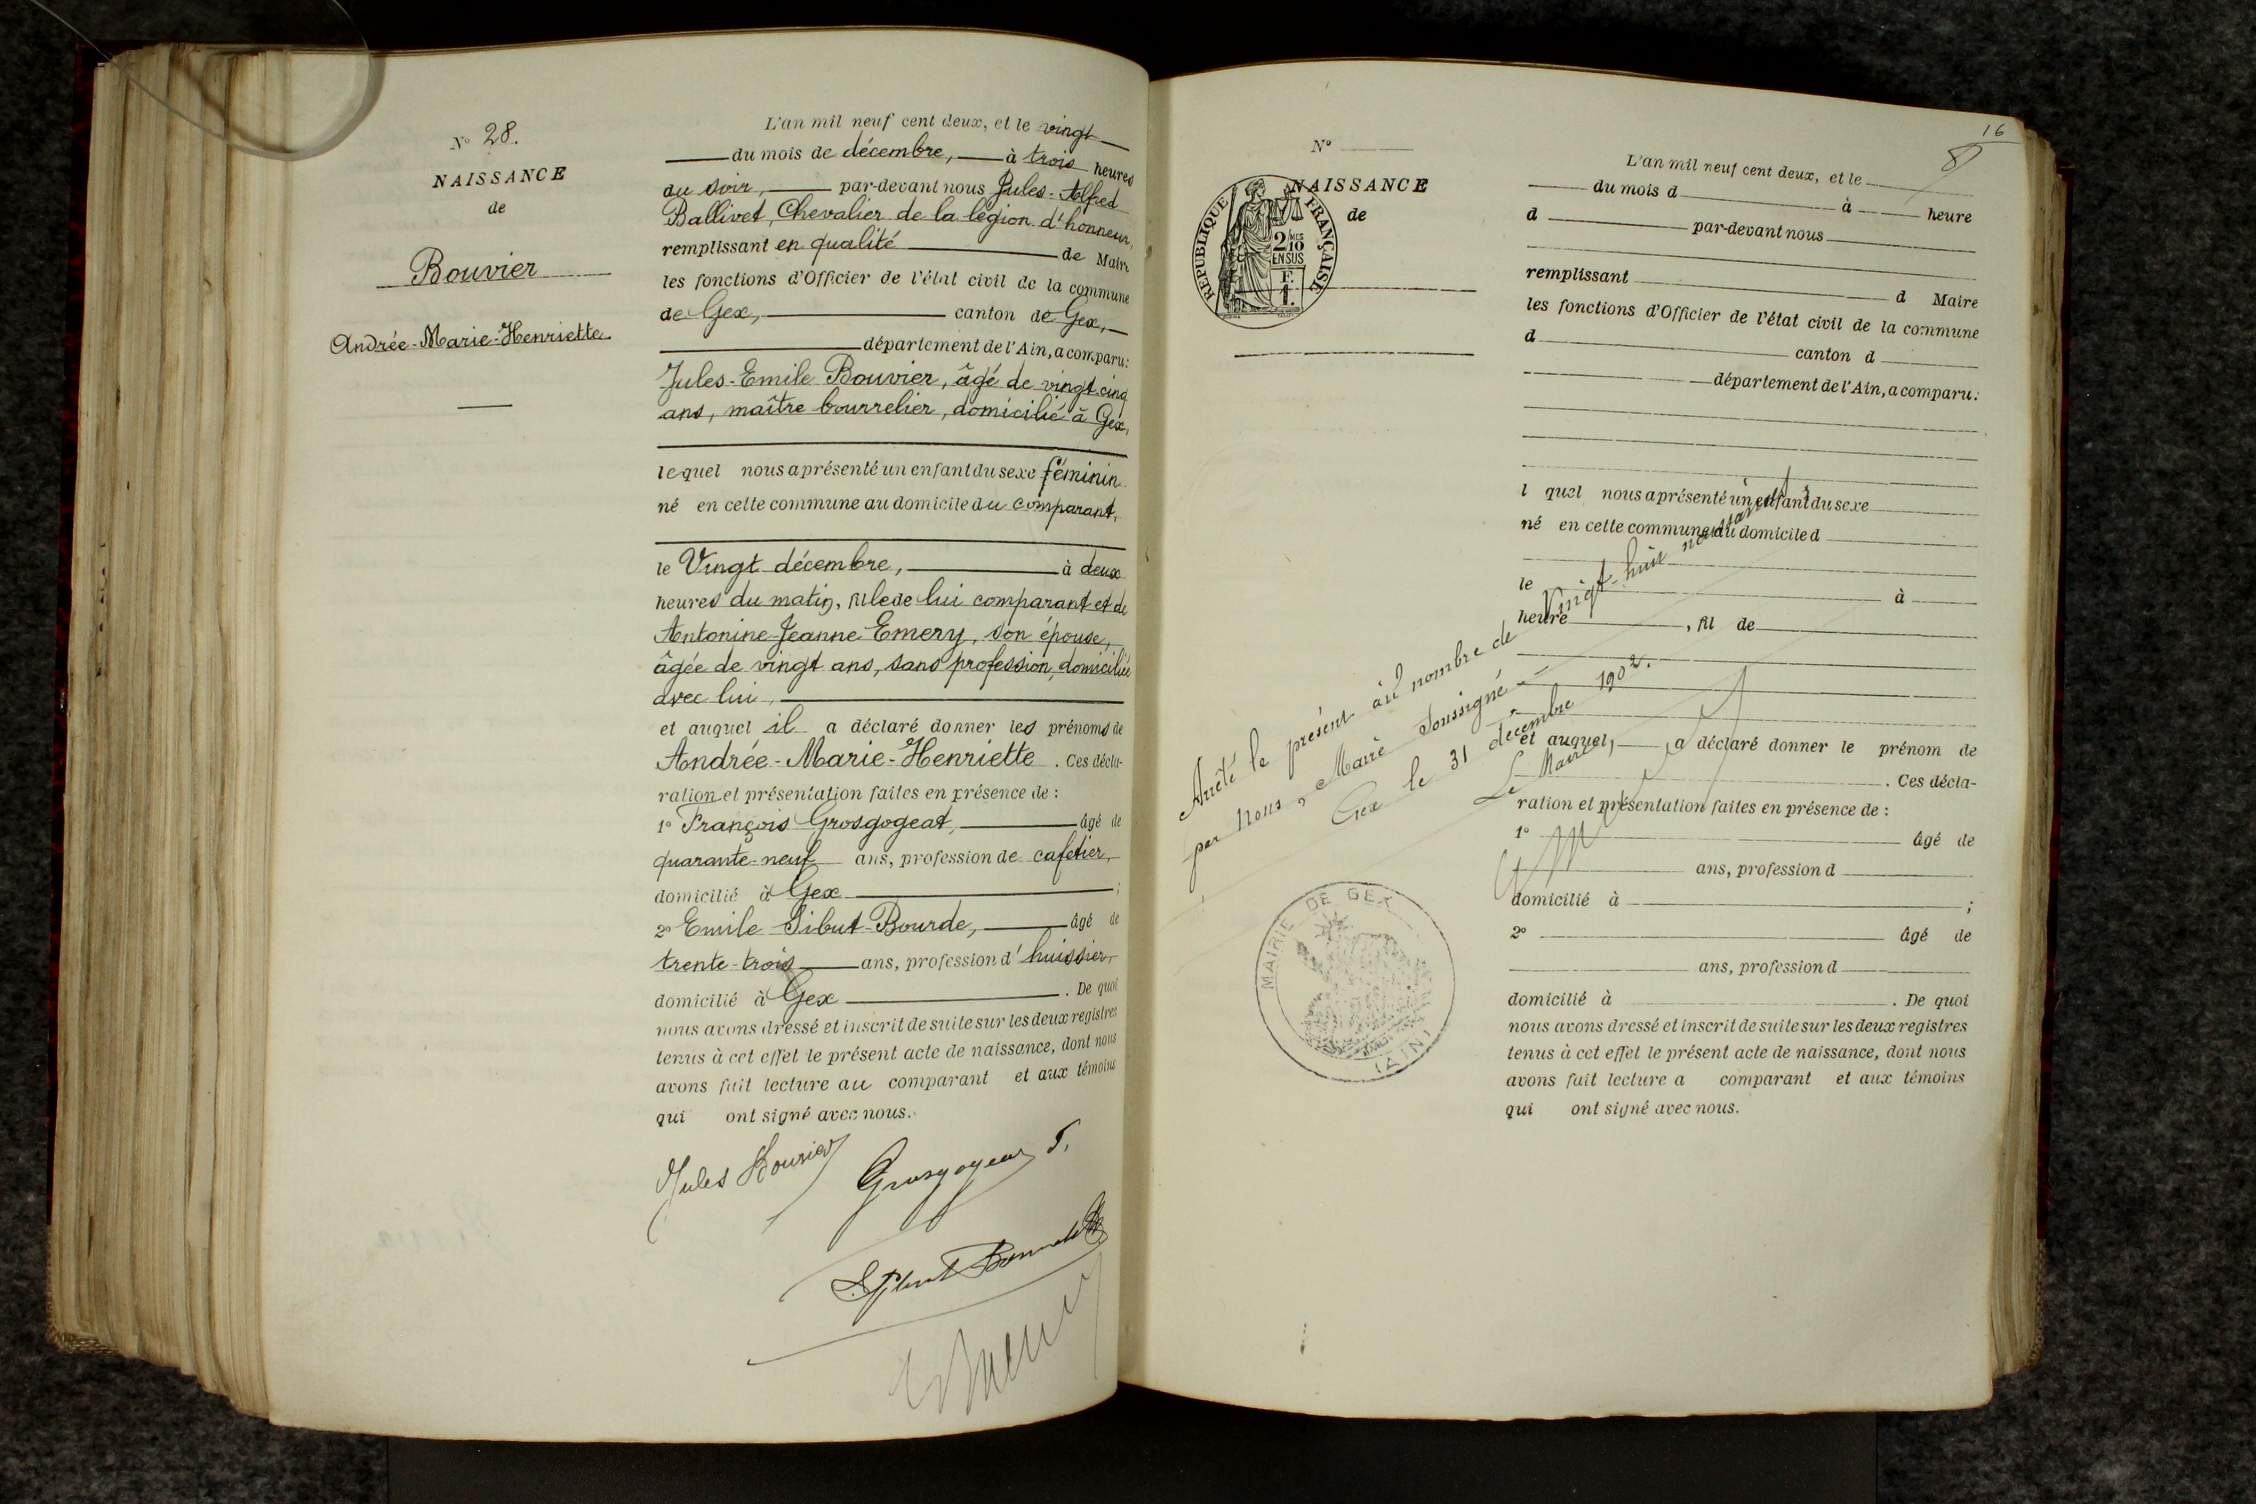 N° 28.
NAISSANCE
de
Bouvier
Andrée-Marie-Henriette
L'an mil neuf cent deux, et le vingt
du mois de décembre, à trois heures
du soir, par-devant nous Jules-Alfred
Ballivet, Chevalier de la légion d'honneur,
remplissant en qualité de Maire
les fonctions d'Officier de l'état civil de la commune
de Gex, canton de Gex,
département de l'Ain, a comparu:
Jules-Emile Bouvier, âgé de vingt cinq
ans, maître bourrelier, domicilié à Gex,
lequel nous a présenté un enfant du sexe féminin
né en cette commune au domicile du comparant,
le Vingt décembre, à deux
heures du matin, fille de lui comparant et de
Antonine-Jeanne Emery, son épouse,
âgée de vingt ans, sans profession, domiciliée
avec lui,
et auquel il a déclaré donner les prénoms de
Andrée-Marie-Henriette. Ces décla-
ration et présentation faites en présence de :
1° François Grosgogeat, âgé de
quarante-neuf ans, profession de cafetier,
domicilié à Gex ;
2° Emile Sibut-Bourde, âgé de
trente-trois ans, profession d'huissier,
domicilié à Gex. De quoi
nous avons dressé et inscrit de suite sur les deux registres
tenus à cet effet le présent acte de naissance, dont nous
avons fait lecture au comparant et aux témoins
qui ont signé avec nous.
Jules Bouvier
Grosgogeat F.
16
N°
NAISSANCE
de
RÉPUBLIQUE FRANÇAISE
2/10 MES
EN SUS
F.
1.
L'an mil neuf cent deux, et le
du mois d à heure
d par-devant nous
remplissant d Maire
les fonctions d'Officier de l'état civil de la commune
d canton d
département de l'Ain, a comparu:
l quel nous a présenté un enfant du sexe
né en cette commune au domicile d
le à
heure , fil de
et auquel a déclaré donner le prénom de
. Ces décla-
ration et présentation faites en présence de :
1° âgé de
ans, profession d
domicilié à ;
2° âgé de
ans, profession d
domicilié à . De quoi
nous avons dressé et inscrit de suite sur les deux registres
tenus à cet effet le présent acte de naissance, dont nous
avons fait lecture a comparant et aux témoins
qui ont signé avec nous.
Arrêté le présent au nombre de Vingt-huit naissances
par Nous, Maire soussigné
Gex le 31 décembre 1902.
Le Maire
MAIRIE DE GEX
(AIN)